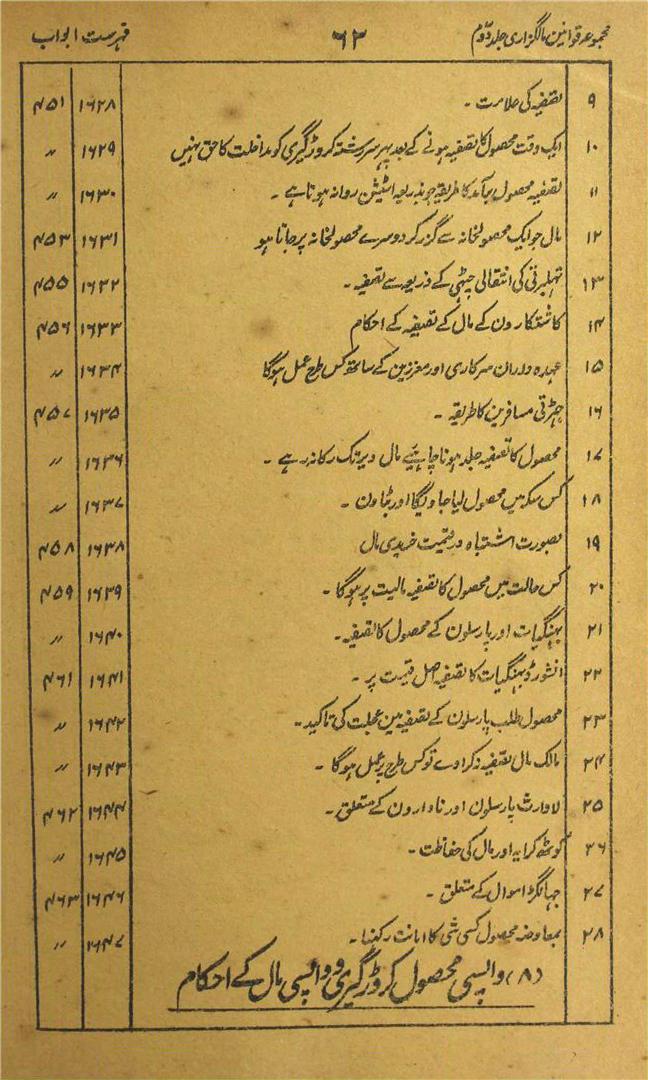 مجموعہ قوانین مالگزاری جلد دوم ۶۳ فہرست ابواب
۹ تصفیہ کی علامت ۔ ۱۶۲۸ ۴۵۱
۱۰ ایک وقت محصول کا تصفیہ ہونے کے بعد پھر سررشتہ کروڑگیری کو مداخلت کا حق نہیں ۱۶۲۹ 〃
۱۱ تصفیہ محصول برآمد کا طریقہ جو بذریعہ اسٹیشن روانہ ہوتا ہے ۔ ۱۶۳۰ 〃
۱۲ مال جو ایک محصولخانہ سے گزر کر دوسرے محصولخانہ پر جاتا ہو ۱۶۳۱ ۴۵۳
۱۳ کی انتقالی چٹھی کے ذریعہ سے تصفیہ ۔ ۱۶۳۲ ۴۵۵
۱۴ کاشتکارون کے مال کے تصفیہ کے احکام ۱۶۳۳ ۴۵۶
۱۵ عہدہ داران سرکاری اور معززین کے ساتھ کس طرح عمل ہوگا ۱۶۳۴ 〃
۱۶ جھڑتی مسافرین کا طریقہ ۔ ۱۶۳۵ ۴۵۷
۱۷ محصول کا تصفیہ جلد ہونا چاہئیے مال دیر تک رکا نہ رہے ۔ ۱۶۳۶ 〃
۱۸ کس سکہ میں محصول لیا جاویگا اور بٹاون ۔ ۱۶۳۷ 〃
۱۹ بصورت اشتباہ در قیمت خریدی مال ۱۶۳۸ ۴۵۸
۲۰ کس حالت میں محصول کا تصفیہ مالیت پر ہوگا ۔ ۱۶۳۹ ۴۵۹
۲۱ بہنگیات اور پارسلون کے محصول کا تصفیہ ۔ ۱۶۴۰ 〃
۲۲ انشورڈ بہنگیات کا تصفیہ اصل قیمت پر ۔ ۱۶۴۱ ۴۶۱
۲۳ محصول طلب پارسلون کے تصفیہ مین عجلت کی تاکید ۔ ۱۶۴۲ 〃
۲۴ مالک مال تصفیہ نہ کراوے تو کس طرح پر عمل ہوگا ۔ ۱۶۴۳ 〃
۲۵ لاوارث پارسلون اور نادارون کے متعلق ۔ ۱۶۴۴ ۴۶۲
۲۶ کوٹھہ کرایہ اور مال کی حفاظت ۔ ۱۶۴۵ 〃
۲۷ جھانگڑ اموال کے متعلق ۔ ۱۶۴۶ ۴۶۳
۲۸ بمعاوضہ محصول کسی شی کا امانت رکھنا ۔ ۱۶۴۷ 〃
(۸) واپسی محصول کروڑگیری و واپسی مال کے احکام